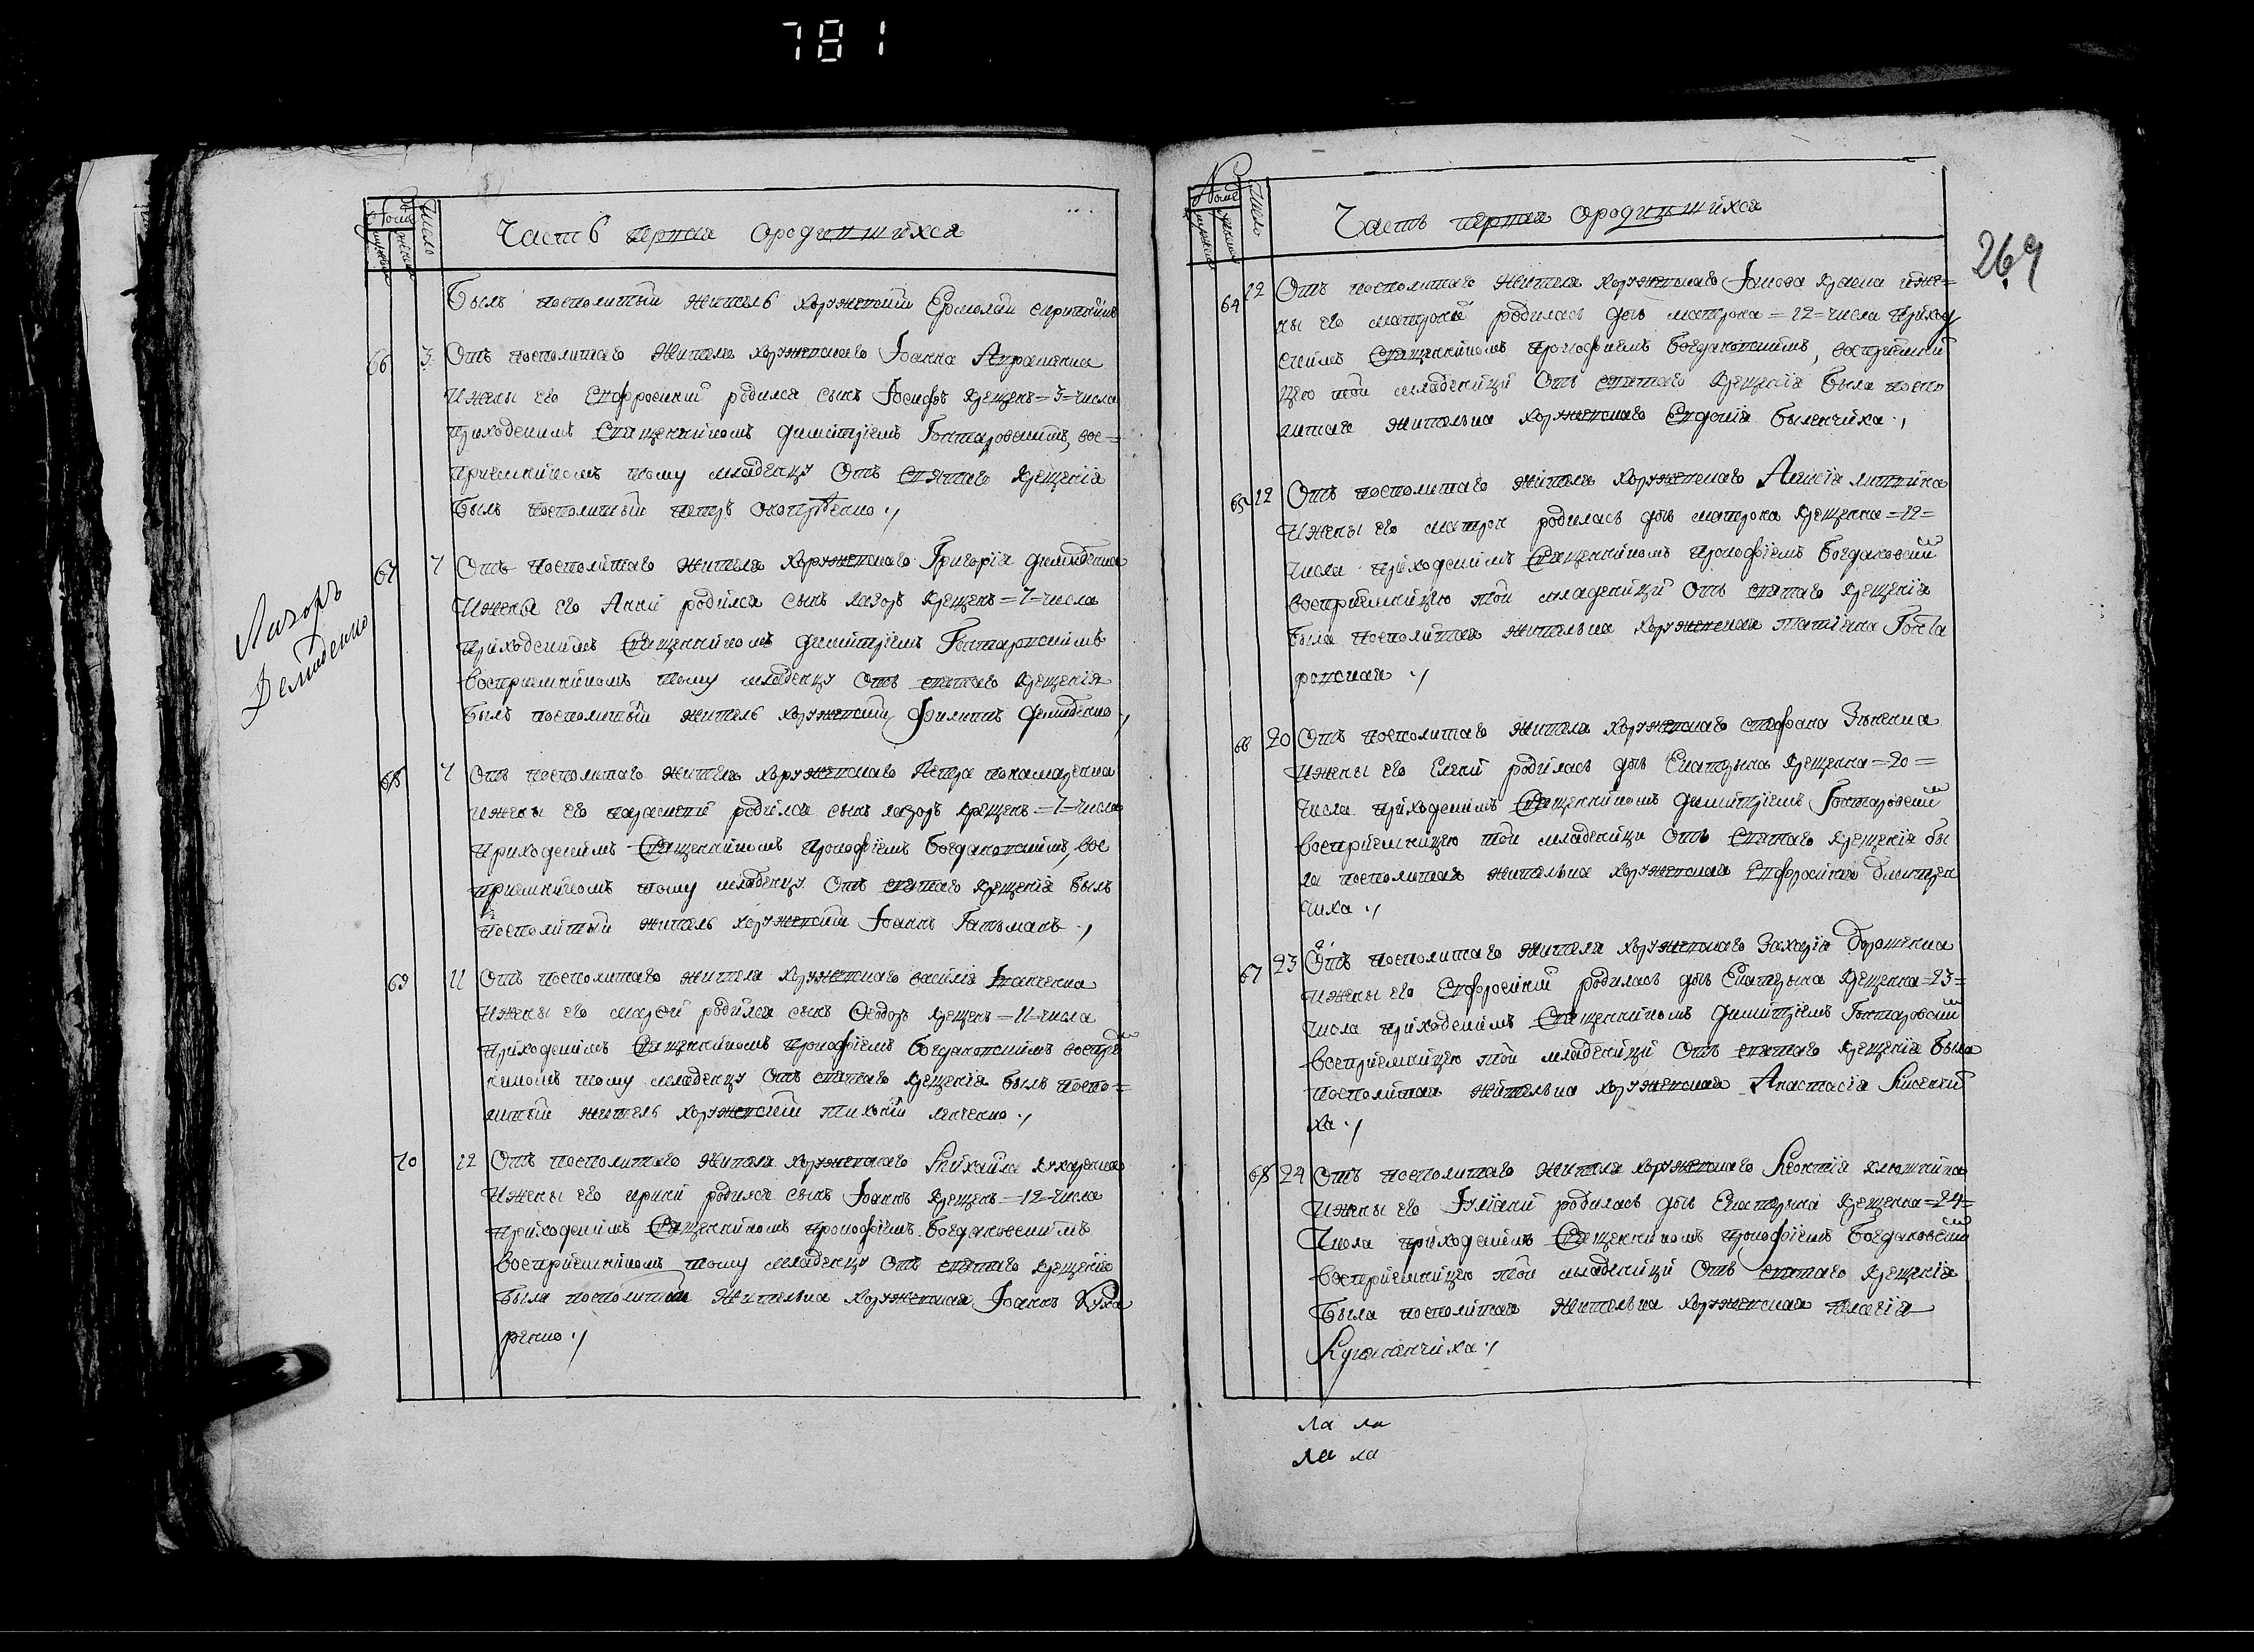 781
Номеръ
Число
мужеска
женска
Часть первая ородившихся
Былъ посполитый житель хоружевский Ермолай
66 3 Отъ посполитаго Жителя хоружевскаго Іоанна
Ижены его Евфросиніи родился сынъ Іосифъ крещенъ =3= числа
приходскимъ Священникомъ Димитріемъ Гонтаровскимъ, вос=
приемникомъ тому младенцу Отъ святаго крещенія
былъ посполитый петръ
67 7 Отъ посполитаго жителя хоружевскаго Григорія Демиденка
Ижены его Анны родился сынъ лазоръ крещенъ =7= числа
приходскимъ Священникомъ Димитріемъ Гонтаровскимъ
воспріемникомъ тому младенцу отъ святаго крещенія
былъ посполитый житель хоружевский Филиппъ Демиденко
Лазоръ
Демиденко
68 7 Отъ посполитаго жителя хоружевскаго Петра понамаренка
ижены его параскевіи родился сынъ лазоръ крещенъ =7= числа
Приходскимъ Священникомъ прокофіемъ Богдановскимъ, вос
приемникомъ тому младенцу Отъ святаго крещенія былъ
посполитый житель хоружевский Іоаннъ Гатьманъ
69 11 Отъ посполитаго жителя хоружевскаго василія
Ижены его марѳы родился сынъ Ѳеодоръ крещенъ =11= числа
приходскимъ Священникомъ прокофіемъ Богдановскимъ воспріем
никомъ тому младенцу Отъ святаго крещенія былъ поспо=
литый житель хоружевский тихонъ
70 12 Отъ посполитаго Жителя хоружевскаго Михаила кухаренка
Ижены его ирины родился сынъ Іоаннъ крещенъ =12= числа
приходскимъ Священникомъ прокофіемъ Богдановскимъ
Воспріемникомъ тому младенцу отъ святаго крещенія
была посполитая Жителька хоружевская Іоаннъ Куха
ренко
Номеръ
Число
мужеска
женска
Часть первая ородившихся
269
64 12 Отъ посполитаго Жителя хоружевскаго Іакова иже=
ны его матроны родилась дочь матрона =12= числа приход
скимъ Священникомъ прокофіемъ Богдановскимъ, воспріемни
цею той младеницы Отъ святаго крещенія была поспо
литая жителька хоружевская Евдокія
65 12 Отъ посполитаго жителя хоружевскаго Алексія
Ижены его матрон родилась дочь матрона крещенна =12=
числа приходскимъ Священникомъ прокофіемъ Богдановским
воспріемницею той младеницы Отъ святаго крещенія
была посполитая жителька хоружевская татіана Гонта
ровская
66 20 Отъ посполитаго жителя хоружевскаго стефана
Ижены его Елены родилась дочь Екатерина крещенна =20=
числа приходскимъ Священникомъ Димитріемъ Гонтаровским
воспріемницею той младеницы отъ Святаго крещенія бы
ла посполитая жителька хоружевская Евфросинія
чиха
67 23 Отъ посполитаго жителя хоружевскаго Захарія
ижены его Евфросиніи родилась дочь Екатерина крещенна =23=
числа приходскимъ Священникомъ Димитріемъ Гонтаровским
воспріемницею той младеницы Отъ святаго крещенія была
посполитая жителька хоружевская Анастасія
ха
68 24 Отъ посполитаго жителя хоружевскаго Леонтія
Ижены его Іуліаніи родилась дочь Екатерина крещенна =24=
Числа приходскимъ Священникомъ прокофіемъ Богдановским
воспріемницею той младеницы Отъ святаго крещенія
была посполитая Жителька хоружевская пелагія
ла ла
ла ла